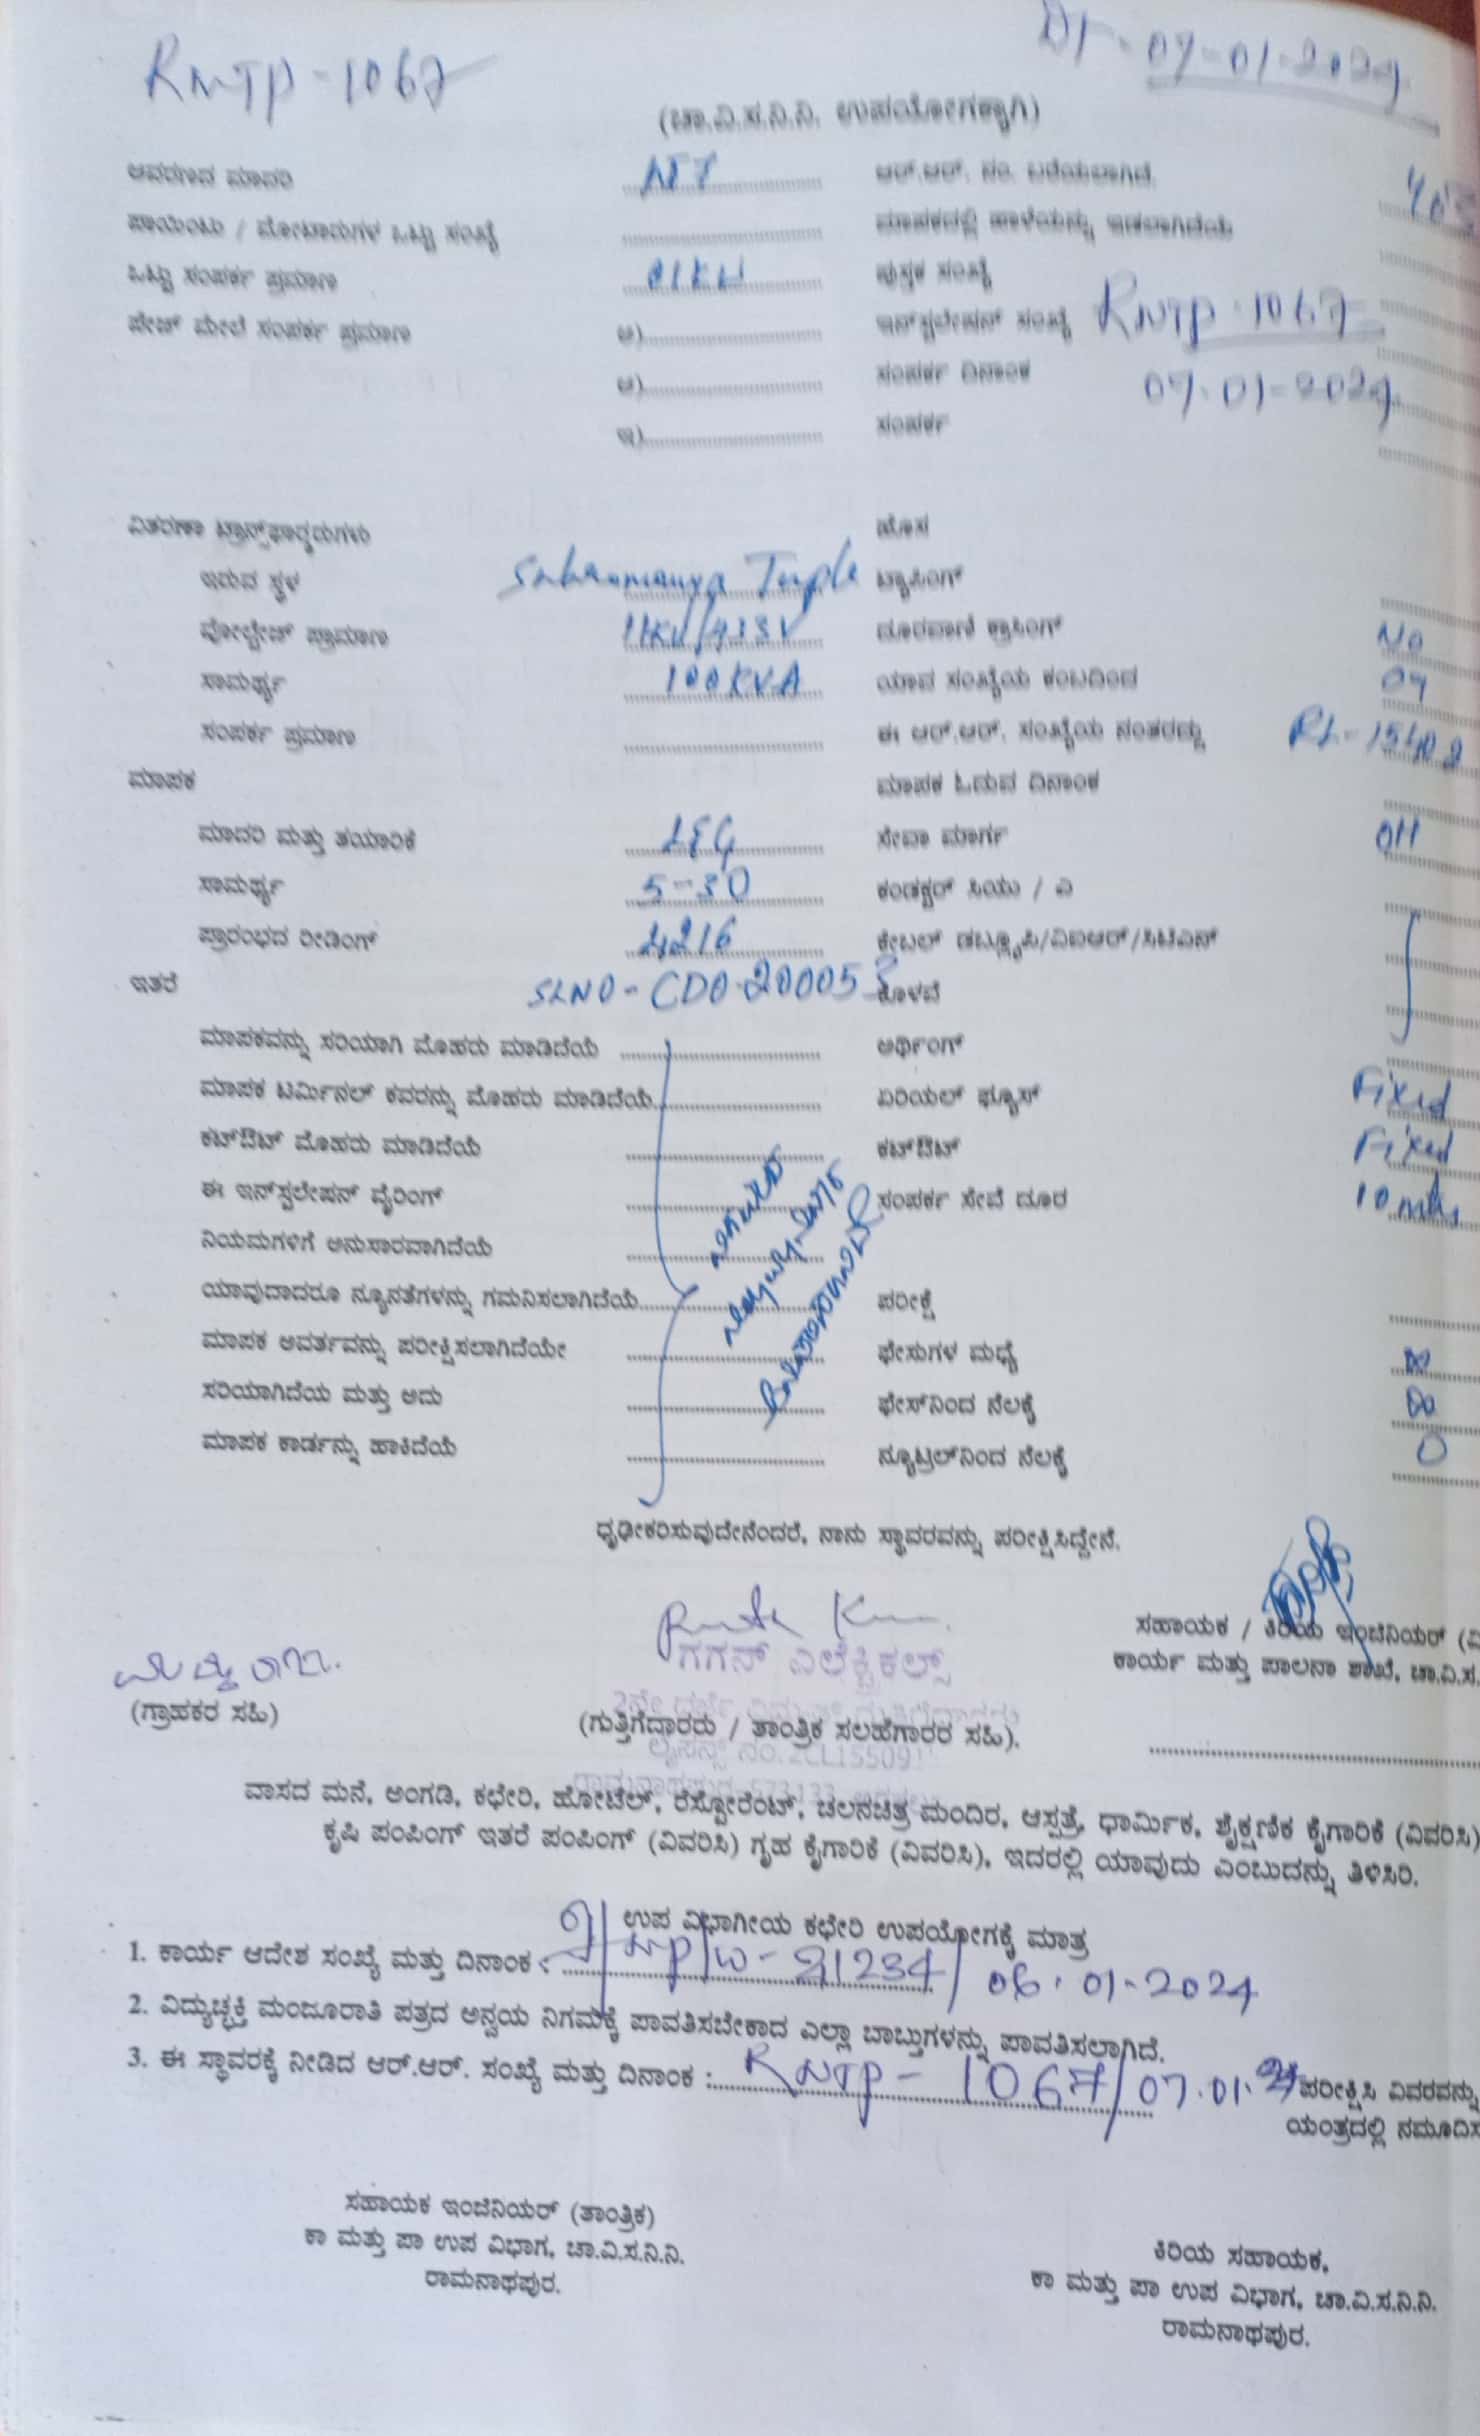 RNTP-1067
Dt-07-01-2024
(ಚಾ.ವಿ.ಸ.ನಿ.ನಿ. ಉಪಯೋಗಕ್ಕಾಗಿ)
ಆವರಣದ ಮಾದರಿ ಆರ್.ಆರ್. ನಂ. ಬರೆಯಲಾಗಿದೆ
ಪಾಯಿಂಟು / ಮೋಟಾರುಗಳ ಒಟ್ಟು ಸಂಖ್ಯೆ ಮಾಪಕದಲ್ಲಿ ಹಾಳೆಯನ್ನು ಇಡಲಾಗಿದೆಯೆ
ಒಟ್ಟು ಸಂಪರ್ಕ ಪ್ರಮಾಣ 01KW ಪುಸ್ತಕ ಸಂಖ್ಯೆ
ಪೇಜ್ ಮೇಲೆ ಸಂಪರ್ಕ ಪ್ರಮಾಣ ಅ) ಇನ್‌ಸ್ಟಲೇಷನ್ ಸಂಖ್ಯೆ RNTP-1067
ಆ) ಸಂಪರ್ಕ ದಿನಾಂಕ 07-01-2024
ಇ) ಸಂಪರ್ಕ
ವಿತರಣಾ ಟ್ರಾನ್ಸ್‌ಫಾರ್ಮರುಗಳು ಹೊಸ
ಇರುವ ಸ್ಥಳ ಟ್ಯಾಪಿಂಗ್
ವೋಲ್ಟೇಜ್ ಪ್ರಾಮಾಣ 11KV/433V ದೂರವಾಣಿ ಕ್ರಾಸಿಂಗ್ No
ಸಾಮರ್ಥ್ಯ 100KVA ಯಾವ ಸಂಖ್ಯೆಯ ಕಂಬದಿಂದ 04
ಸಂಪರ್ಕ ಪ್ರಮಾಣ ಈ ಆರ್.ಆರ್. ಸಂಖ್ಯೆಯ ನಂತರದ್ದು RL-15402
ಮಾಪಕ ಮಾಪಕ ಓದುವ ದಿನಾಂಕ
ಮಾದರಿ ಮತ್ತು ತಯಾರಿಕೆ L&G ಸೇವಾ ಮಾರ್ಗ OH
ಸಾಮರ್ಥ್ಯ 5-30 ಕಂಡಕ್ಟರ್ ಸಿಯು / ಎ
ಪ್ರಾರಂಭದ ರೀಡಿಂಗ್ 4216 ಕೇಬಲ್ ಡಬ್ಲ್ಯೂಪಿ/ವಿಐಆರ್/ಸಿಟಿಎಸ್
ಇತರೆ SLNO-CDO-200053 ಕೊಳವೆ
ಮಾಪಕವನ್ನು ಸರಿಯಾಗಿ ಮೊಹರು ಮಾಡಿದೆಯೆ ಅರ್ಥಿಂಗ್
ಮಾಪಕ ಟರ್ಮಿನಲ್ ಕವರನ್ನು ಮೊಹರು ಮಾಡಿದೆಯೆ ಏರಿಯಲ್ ಫ್ಯೂಸ್ Fixed
ಕಟ್‌ಔಟ್ ಮೊಹರು ಮಾಡಿದೆಯೆ ಕಟ್‌ಔಟ್ Fixed
ಈ ಇನ್‌ಸ್ಟಲೇಷನ್ ವೈರಿಂಗ್ ಸಂಪರ್ಕ ಸೇವೆ ದೂರ 10 mtrs
ನಿಯಮಗಳಿಗೆ ಅನುಸಾರವಾಗಿದೆಯೆ
ಯಾವುದಾದರೂ ನ್ಯೂನತೆಗಳನ್ನು ಗಮನಿಸಲಾಗಿದೆಯೆ ಪರೀಕ್ಷೆ
ಮಾಪಕ ಅವರ್ತವನ್ನು ಪರೀಕ್ಷಿಸಲಾಗಿದೆಯೇ ಫೇಸುಗಳ ಮಧ್ಯೆ ∞
ಸರಿಯಾಗಿದೆಯ ಮತ್ತು ಅದು ಫೇಸ್‌ನಿಂದ ನೆಲಕ್ಕೆ ∞
ಮಾಪಕ ಕಾರ್ಡನ್ನು ಹಾಕಿದೆಯೆ ನ್ಯೂಟ್ರಲ್‌ನಿಂದ ನೆಲಕ್ಕೆ 0
ಧೃಢೀಕರಿಸುವುದೇನೆಂದರೆ, ನಾನು ಸ್ಥಾವರವನ್ನು ಪರೀಕ್ಷಿಸಿದ್ದೇನೆ.
ಸಹಾಯಕ / ಕಿರಿಯ ಇಂಜಿನಿಯರ್ (ವಿ
ಗಗನ್ ಎಲೆಕ್ಟ್ರಿಕಲ್ಸ್ ಕಾರ್ಯ ಮತ್ತು ಪಾಲನಾ ಶಾಖೆ, ಚಾ.ವಿ.ಸ.
(ಗ್ರಾಹಕರ ಸಹಿ) (ಗುತ್ತಿಗೆದಾರರು / ತಾಂತ್ರಿಕ ಸಲಹೆಗಾರರ ಸಹಿ).
ವಾಸದ ಮನೆ, ಅಂಗಡಿ, ಕಛೇರಿ, ಹೋಟೆಲ್, ರೆಸ್ಟೋರೆಂಟ್, ಚಲನಚಿತ್ರ ಮಂದಿರ, ಆಸ್ಪತ್ರೆ, ಧಾರ್ಮಿಕ, ಶೈಕ್ಷಣಿಕ ಕೈಗಾರಿಕೆ (ವಿವರಿಸಿ)
ಕೃಷಿ ಪಂಪಿಂಗ್ ಇತರೆ ಪಂಪಿಂಗ್ (ವಿವರಿಸಿ) ಗೃಹ ಕೈಗಾರಿಕೆ (ವಿವರಿಸಿ), ಇದರಲ್ಲಿ ಯಾವುದು ಎಂಬುದನ್ನು ತಿಳಿಸಿರಿ.
ಉಪ ವಿಭಾಗೀಯ ಕಛೇರಿ ಉಪಯೋಗಕ್ಕೆ ಮಾತ್ರ
1. ಕಾರ್ಯ ಆದೇಶ ಸಂಖ್ಯೆ ಮತ್ತು ದಿನಾಂಕ : 21234/06.01-2024
2. ವಿದ್ಯುಚ್ಛಕ್ತಿ ಮಂಜೂರಾತಿ ಪತ್ರದ ಅನ್ವಯ ನಿಗಮಕ್ಕೆ ಪಾವತಿಸಬೇಕಾದ ಎಲ್ಲಾ ಬಾಬ್ತುಗಳನ್ನು ಪಾವತಿಸಲಾಗಿದೆ.
3. ಈ ಸ್ಥಾವರಕ್ಕೆ ನೀಡಿದ ಆರ್.ಆರ್. ಸಂಖ್ಯೆ ಮತ್ತು ದಿನಾಂಕ : RNTP-1067/07.01.24 ಪರೀಕ್ಷಿಸಿ ವಿವರವನ್ನು
ಯಂತ್ರದಲ್ಲಿ ನಮೂದಿಸ
ಸಹಾಯಕ ಇಂಜಿನಿಯರ್ (ತಾಂತ್ರಿಕ)
ಕಾ ಮತ್ತು ಪಾ ಉಪ ವಿಭಾಗ, ಚಾ.ವಿ.ಸ.ನಿ.ನಿ.
ರಾಮನಾಥಪುರ.
ಕಿರಿಯ ಸಹಾಯಕ,
ಕಾ ಮತ್ತು ಪಾ ಉಪ ವಿಭಾಗ, ಚಾ.ವಿ.ಸ.ನಿ.ನಿ.
ರಾಮನಾಥಪುರ.